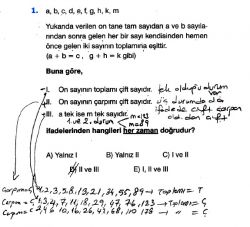 1. a, b, c, d, e, f, g, h, k, m
Yukarıda verilen on tane tam sayıdan a ve b sayıla-
rından sonra gelen her bir sayı kendisinden hemen
önce gelen iki sayının toplamına eşittir.
(a + b = c, g + h = k gibi)
Buna göre,
I. On sayının toplamı çift sayıdır. tek olduğu durum var
II. On sayının çarpımı çift sayıdır. üç durumda da
ifadede çift çarpan
olduğundan çift
III. a tek ise m tek sayıdır. m=123
1. ve 2. durum m=89
ifadelerinden hangileri her zaman doğrudur?
A) Yalnız I B) Yalnız II C) I ve II
II ve III E) I, II ve III
Çarpım=Ç 1, 2, 3, 5, 8, 13, 21, 34, 55, 89 → Toplam = T
Çarpım = Ç 1, 3, 4, 7, 11, 18, 29, 47, 76, 123 → Toplam = Ç
Çarpım = Ç 2, 4, 6, 10, 16, 26, 42, 68, 110, 178 → " = Ç